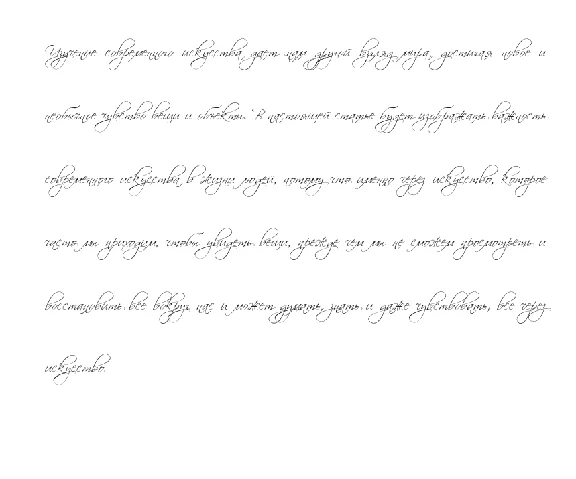 Изучение современного искусства дает нам другой взгляд мира, достигая новое и
необычное чувство вещи и объекты. В настоящей статье будет изображать важность
современного искусства в жизни людей, потому что именно через искусство, которое
часто мы приходим, чтобы увидеть вещи, прежде чем мы не сможем просмотреть и
восстановить все вокруг нас и может думать, знать и даже чувствовать, все через
искусство.